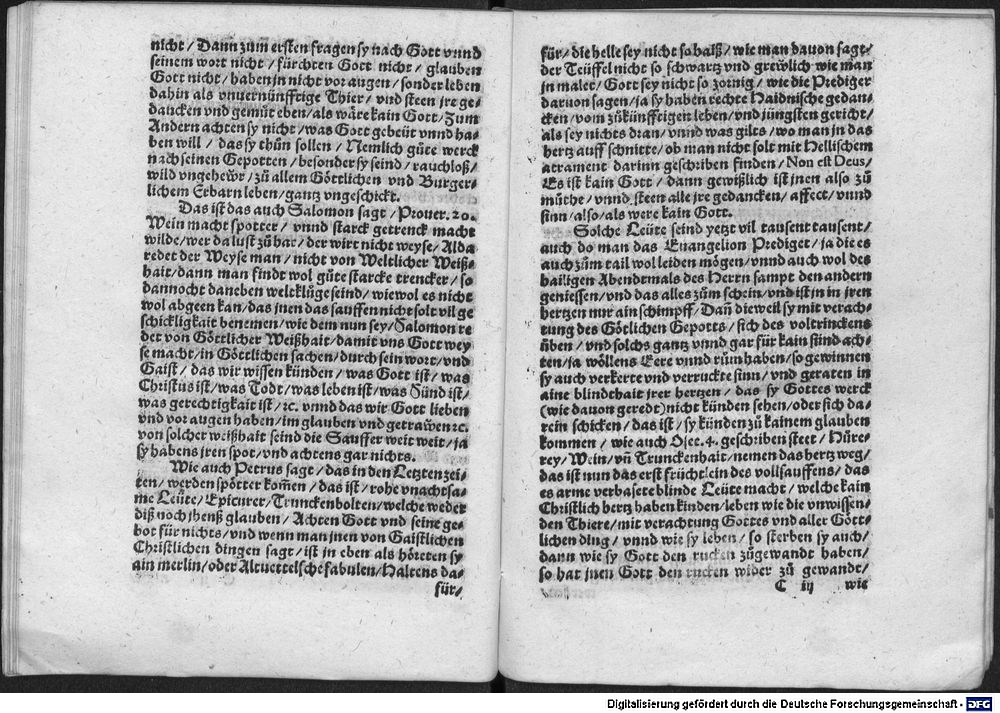 nicht / Dann zum ersten fragen sy nach Gott vnnd
seinem wort nicht / fürchten Gott nicht / glauben
Gott nicht / haben jn nicht vor augen / sonder leben
dahin als vnuernünfftige Thier / vnd steen jre ge-
dancken vnd gemüt eben / als wäre kain Gott / Zum
Andern achten sy nicht / was Gott gebeüt vnnd ha-
ben will / das sy thůn sollen / Nemlich gůte werck
nach seinen Gepotten / besonder sy seind / rauchloß /
wild vngehewr / zů allem Göttlichen vnd Burger-
lichem Erbarn leben / gantz vngeschickt.
Das ist das auch Salomon sagt / Prouer. 20.
Wein macht spotter / vnnd starck getrenck macht
wilde / wer da lust zů hat / der wirt nicht weyse / Alda
redet der Weyse man / nicht von Weltlicher Weiß-
hait / dann man findt wol gůte starcke trencker / so
dannocht daneben weltklůge seind / wiewol es nicht
wol abgeen kan / das jnen das sauffen nicht solt vil ge
schickligkait benemen / wie dem nun sey / Salomon re
det von Göttlicher Weißhait / damit vns Gott wey
se macht / in Göttlichen sachen / durch sein wort / vnd
Gaist / das wir wissen künden / was Gott ist / was
Christus ist / was Todt / was leben ist / was Sünd ist /
was gerechtigkait ist / ꝛc. vnnd das wir Gott lieben
vnd vor augen haben / im glauben vnd getrawen ꝛc.
von solcher weißhait seind die Sauffer weit weit / ja
sy habens jren spot / vnd achtens gar nichts.
Wie auch Petrus sagt / das in den Letzten zei-
ten / werden spötter kom̃en / das ist / rohe vnachtsa-
me Leüte / Epicurer / Trunckenbolten / welche weder
diß noch jhenß glauben / Achten Gott vnd seine ge-
bot für nichts / vnd wenn man jnen von Gaistlichen
Christlichen dingen sagt / ist jn eben als höreten sy
ain merlin / oder Altuettelsche fabulen / Haltens da-
für /
für / die helle sey nicht so haiß / wie man dauon sagt /
der Teüffel nicht so schwartz vnd grewlich wie man
jn malet / Gott sey nicht so zornig / wie die Prediger
daruon sagen / ja sy haben rechte Haidnische gedan-
cken / vom zůkünfftigen leben / vnd jüngsten gericht /
als sey nichts dran / vnnd was gilts / wo man jn das
hertz auff schnitte / ob man nicht solt mit Hellischem
atrament darinn geschriben finden / Non est Deus /
Es ist kain Gott / dann gewißlich ist jnen also zů
můthe / vnnd steen alle jre gedancken / affect / vnnd
sinn / also / als were kain Gott.
Solche Leüte seind yetzt vil tausent tausent /
auch do man das Euangelion Prediget / ja die es
auch zům tail wol leiden mögen / vnnd auch wol des
hailigen Abendtmals des Herrn sampt den andern
geniessen / vnd das alles zům schein / vnd ist jn in jren
hertzen nur ain schimpff / Dañ dieweil sy mit verach-
tung des Götlichen Gepotts / sich des voltrinckens
üben / vnd solchs gantz vnnd gar für kain sünd ach-
ten / ja wöllens Eere vnnd růn haben / so gewinnen
sy auch verkerte vnd verruckte sinn / vnd geraten in
aine blindthait jrer hertzen / das sy Gottes werck
(wie dauon geredt) nicht künden sehen / oder sich da-
rein schicken / das ist / sy künden zů kainem glauben
kommen / wie auch Osee. 4. geschriben steet / Hůre-
rey / Wein / vñ Trunckenhait / nemen das hertz weg /
das ist nun das erst früchtlein des vollsauffens / das
es arme verbasete blinde Leüte macht / welche kain
Christlich hertz haben kinden / leben wie die vnwissen-
den Thiere / mit verachtung Gottes vnd aller Gött-
lichen ding / vnnd wie sy leben / so sterben sy auch /
dann wie sy Gott den rucken zůgewandt haben /
so hat jnen Gott den rucken wider zů gewandt /
C iij wie
Digitalisierung gefördert durch die Deutsche Forschungsgemeinschaft - DFG